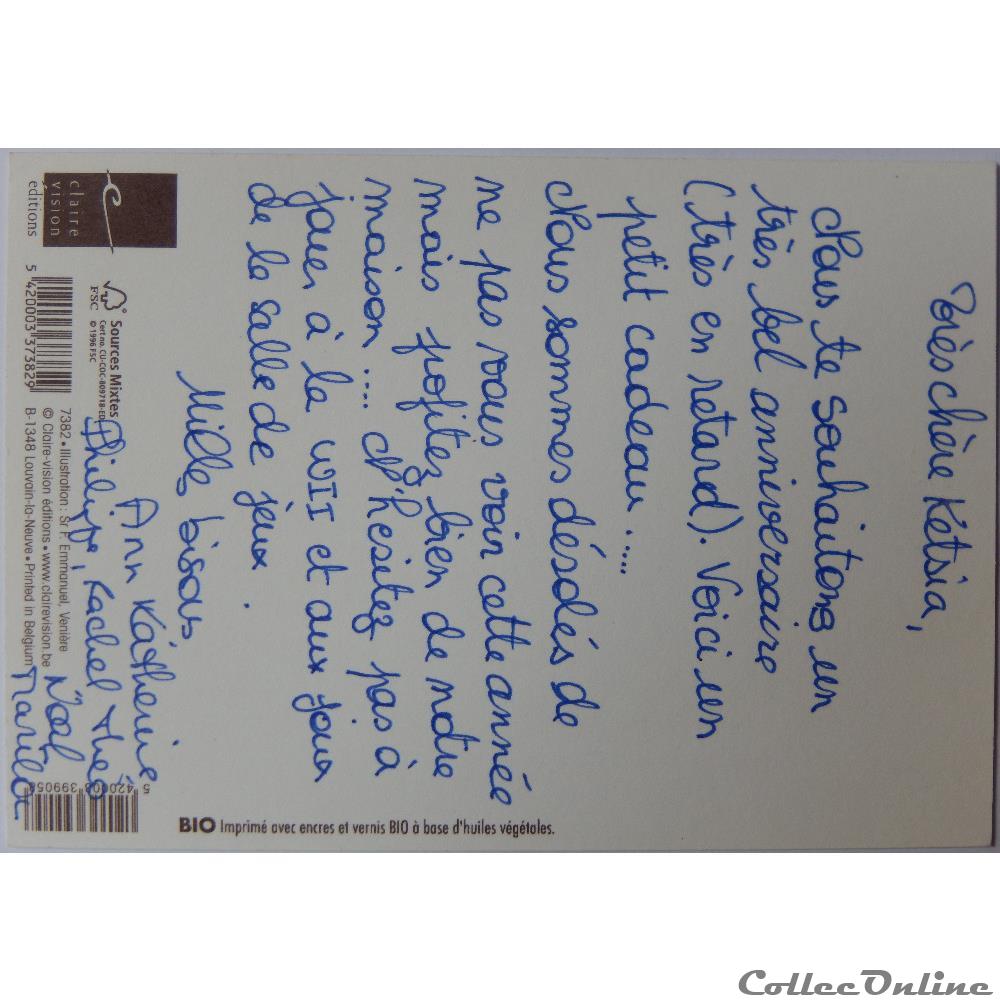 Très chère Ketsia,
Nous te souhaitons un
très bel anniversaire
(très en retard). Voici un
petit cadeau.....
Nous sommes désolés de
ne pas vous voir cette année
mais profitez bien de notre
maison.... N'hesitez pas à
jouer à la WII et aux jeux
de la salle de jeux.
Mille bisous,
Ann Katherine
Philippe, Rachel Théo
Noé
claire
vision
editions
FSC
Sources Mixtes
Cert no. CU-COC-809718-ED
© 1996 FSC
5 420003 373829
7382 • Illustration : Sr F. Emmanuel, Venière
© Claire-vision éditions • www.clairevision.be
B-1348 Louvain-la-Neuve • Printed in Belgium
BIO Imprimé avec encres et vernis BIO à base d'huiles végétales.
CollecOnline